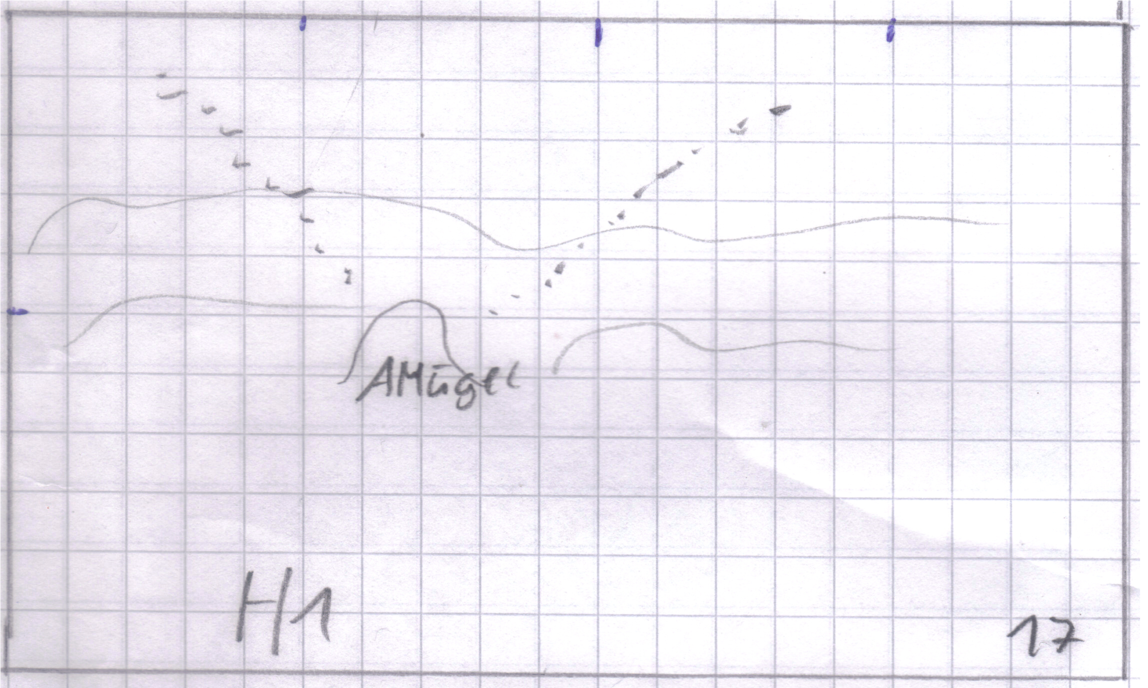 AMügel
H1
17